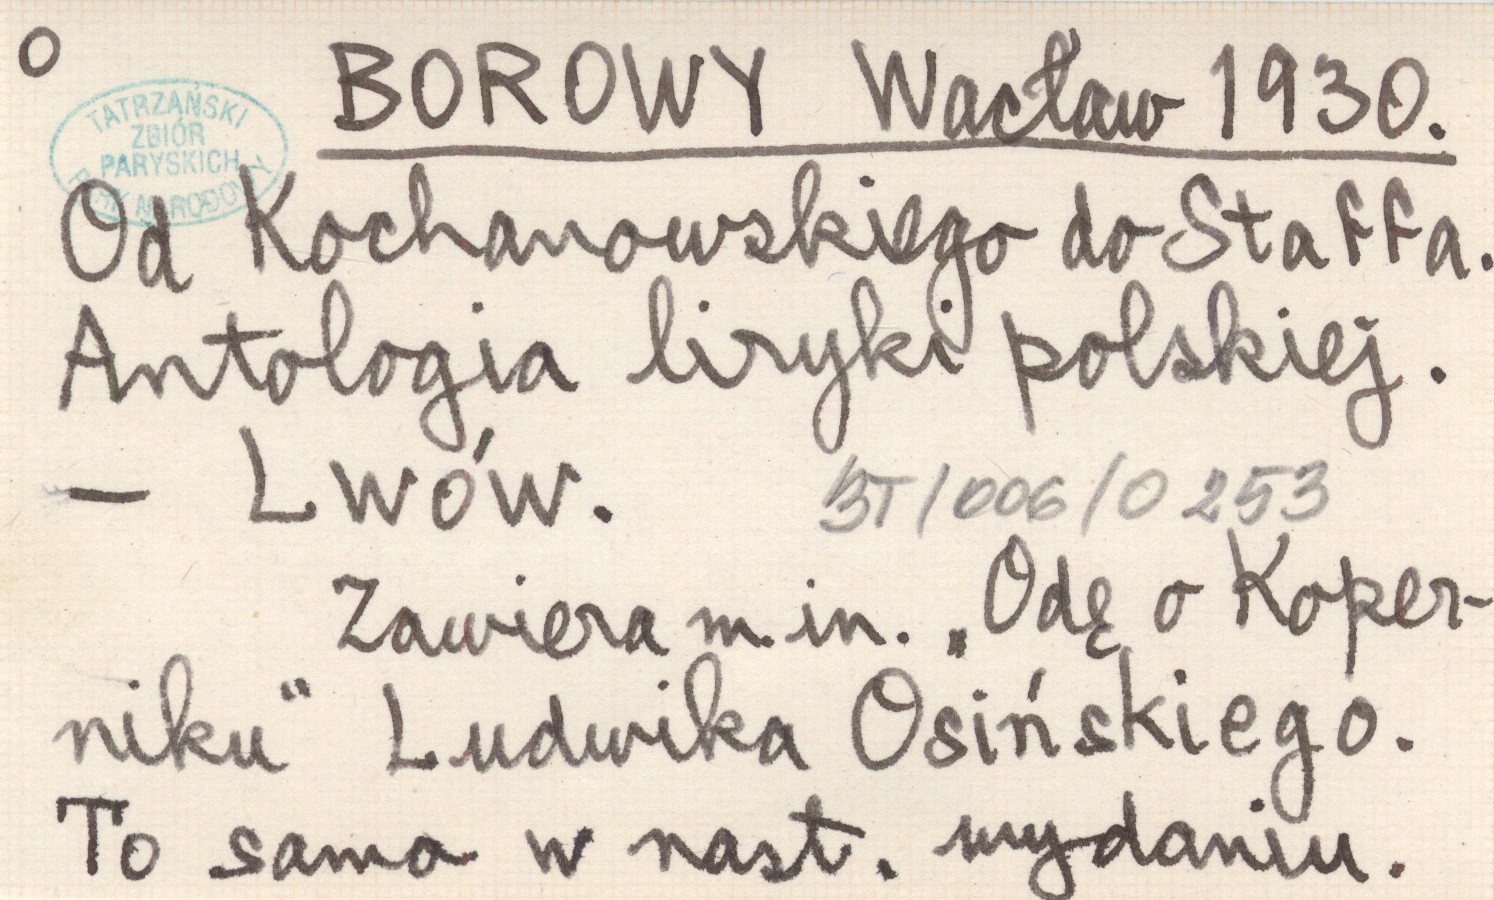 O BOROWY Wacław 1930.
TATRZAŃSKI
ZBIÓR
PARYSKICH
PARK NARODOWY
Od Kochanowskiego do Staffa.
Antologia liryki polskiej.
— Lwów.
BT/006/0 253
Zawiera m.in. „Odę o Koper-
niku" Ludwika Osińskiego.
To samo w nast. wydaniu.